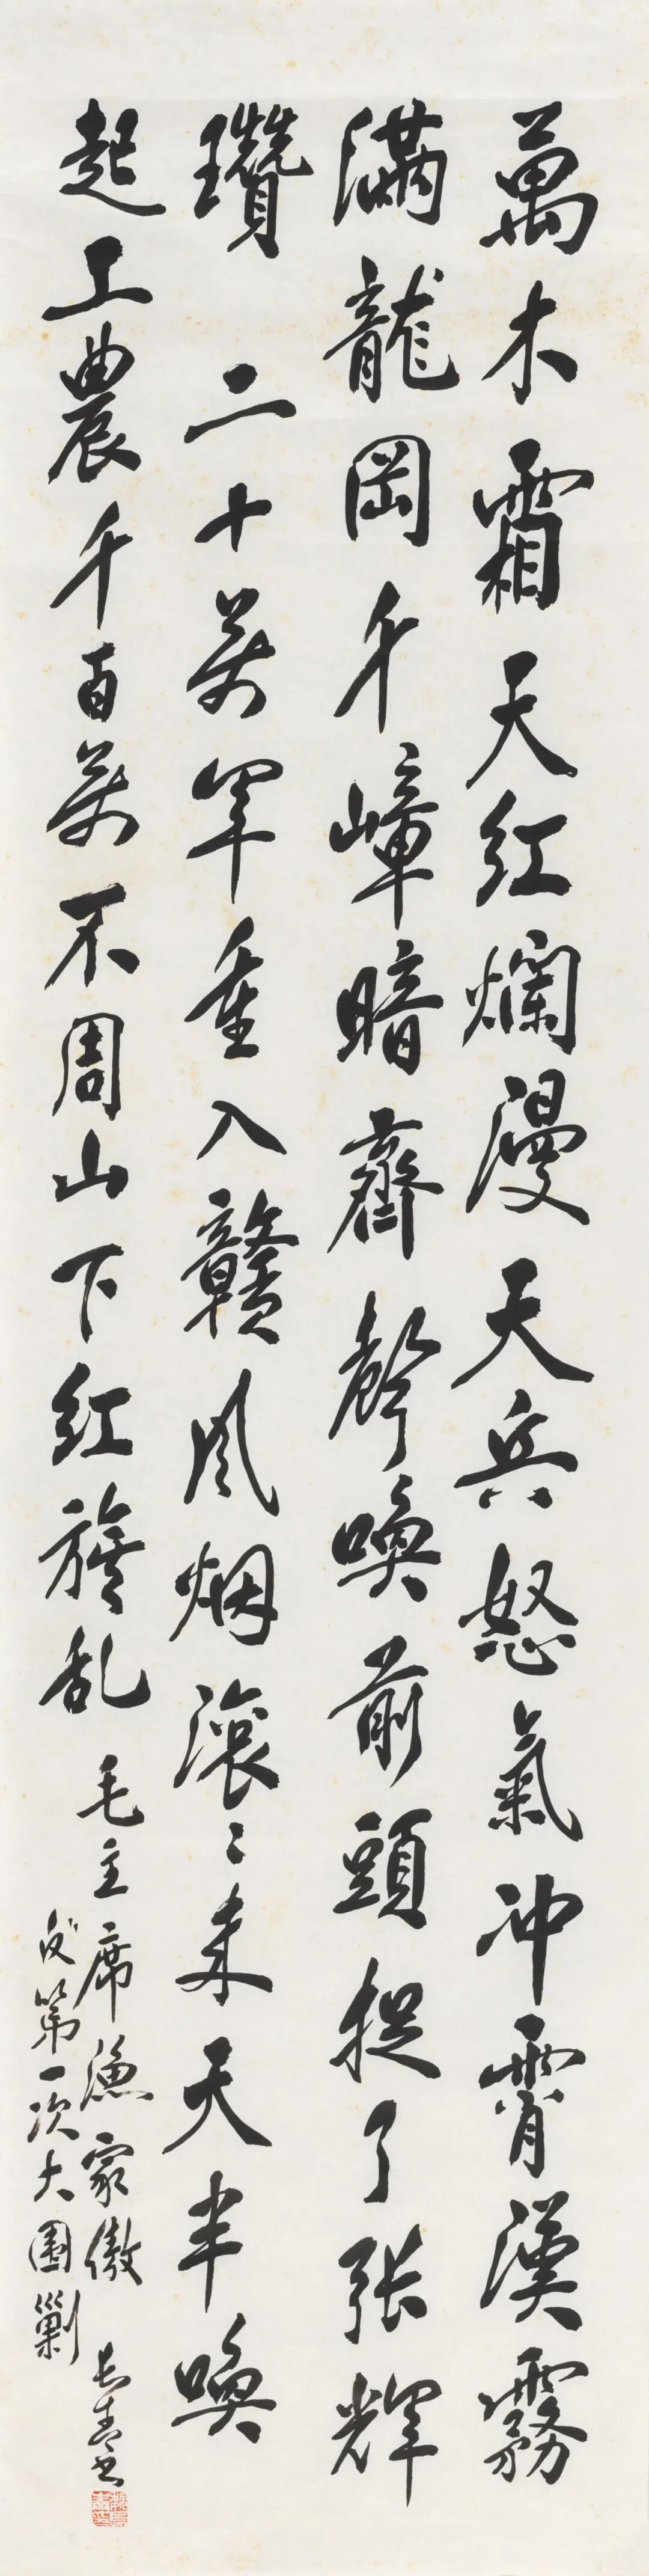 萬木霜天紅爛漫天兵怒氣冲霄漢霧
滿龍岡千嶂暗齊聲喚前頭捉了張輝
瓚 二十萬軍重入贛風烟滚〻来天半喚
起工農千百萬不周山下紅旗乱
毛主席漁家傲
反第一次大圍剿
長青书